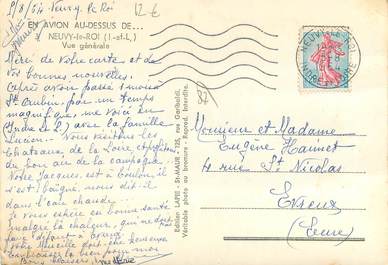 9/8/64 Neuvy le Roi
12 €
EN AVION AU-DESSUS DE...
NEUVY-le-ROI (I.-et-L.)
Vue générale
Merci de votre carte et de
vos bonnes nouvelles.
Après avoir passé 1 mois à
St Aubin par un temps
magnifique, me voici en
Indre et L. avec la famille
Lucien. Nous visitons les
Châteaux de la Loire et profitons
du bon air de la campagne.
Notre Jacques, est à Toulon, il
s'est baigné, nous dit-il
dans l'eau chaude...
Je vous espère en bonne santé
malgré la chaleur, qui ne doit
pas
Embrassez bien pour moi
37
Edition LAPIE - St-MAUR - 125, rue Garibaldi.
Véritable photo au bromure - Reprod. Interdite.
NEUVY-LE-ROI
INDRE-ET-LOIRE
Monsieur et Madame
Eugène Hamet
4 rue St Nicolas
Evreux
(Eure)